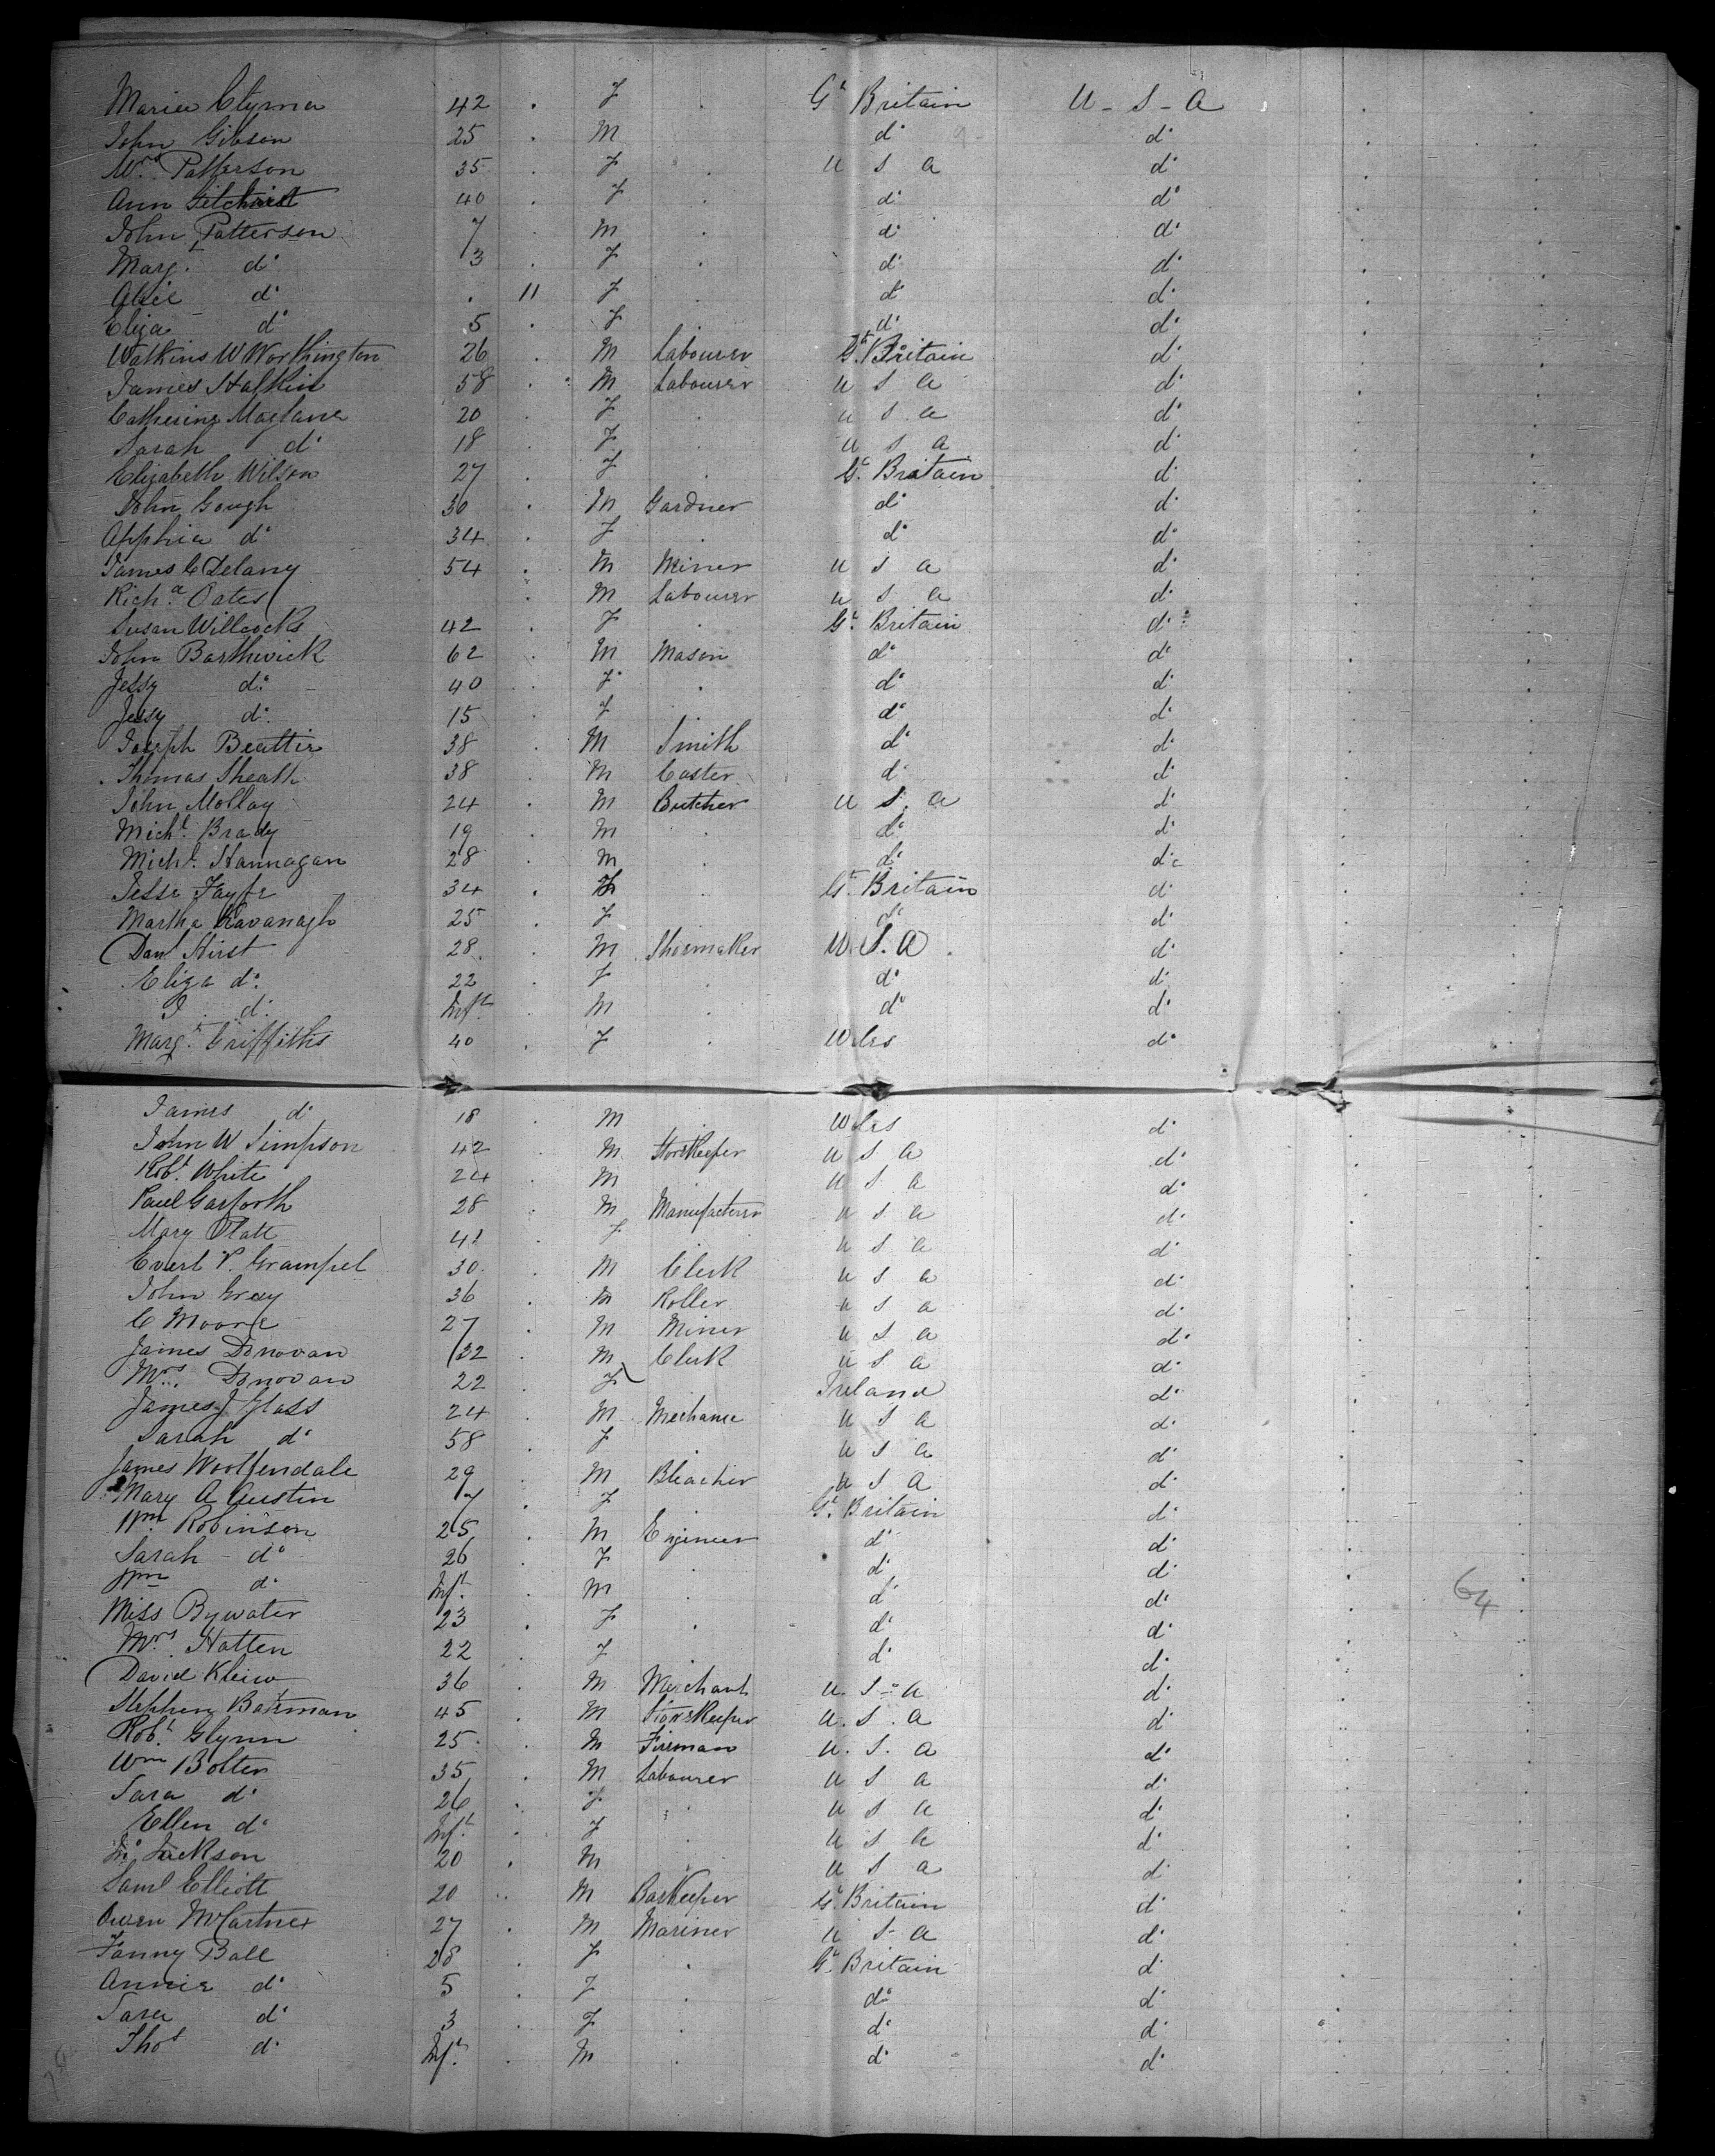 Maria Clyma 42 . F . Gt Britain U - S - A
John Gibson 25 . M do do
Mrs Patterson 35 . F . U S A do
Ann Gilchrist 40 . F . do do
John Patterson 7 . M . do do
Marg.t do 3 . F . do do
Alice do . 11 F . do do
Eliza do 5 . F do do
Watkins W Worthington 26 . M Labourer Gt Britain do
James Halkin 58 . M Labourer U S A do
Catherine Maglane 20 . F . U S A do
Sarah do 18 . F . U S A do
Elizabeth Wilson 27 . F . Gt Britain do
John Gough 30 . M Gardner do do
Apphia do 34 . F . do do
James C Delany 54 . M Miner U S A do
Richd Oates . M Labourer U S A do
Susan Willcocks 42 . F . Gt Britain do
John Barthwick 62 . M Mason do do
Jessy do 40 . F . do do
Jessy do 15 . F . do do
Joseph Beattie 38 . M Smith do do
Thomas Sheath 38 . M Caster do do
John Molloy 24 . M Butcher U S A do
Michl. Brady 19 . M . do do
Michl. Hannagan 28 . M . do do
Jesse Fayfe 34 . F . Gt Britain do
Martha Kavanagh 25 . F . do do
Danl Hirst 28 . M Shoemaker U.S.A. do
Eliza do 22 . F . do do
J do Inft. M . do do
Margt. Griffiths 40 . F . Wles do
James do 18 . M . Wles do
John W Simpson 42 . M Storekeeper U S A do
Robt. White 24 M U S A do
Paul Garforth 28 . M Manufacturer U S A do
Mary Platt 41 . F . U S A do
Evert P. Grampel 30 . M Clerk U S A do
John Gray 36 . M Roller U S A do
C Moore 27 . M Miner U S A do
James Donovan 32 . M Clerk U S A do
Mrs. Donovan 22 . F Ireland do
James J Glass 24 . M Mechanic U S A do
Sarah do 58 . F U S A do
James Woolfendale 29 . M Bleacher U S A do
Mary A Austin 7 . F Gt. Britain do
Wm Robinson 25 . M Engineer do do
Sarah - do 26 . F . do do
Wm do Inft. . M . do do
Miss Bywater 23 . F . do do
Mrs. Hatten 22 F . do do
David Klein 36 M Merchant U. S. A do
Stephen Bateman 45 . M Storekeeper U.S.A do
Robt. Glynn 25 . M Fireman U.S.A do
Wm Bolten 35 . M Labourer U S A do
Sara do 26 . F . U S A do
Ellen do Inft. . F . U S A do
Jno Jackson 20 . M . U S A do
Saml Elliott 20 . M Barkeeper Gt. Britain do
Owen McCartney 27 . M Mariner U S A do
Fanny Ball 28 . F . Gt. Britain do
Annie do 5 . F . do do
Sara do 3 . F . do do
Thos do Inft. . M . do do
64